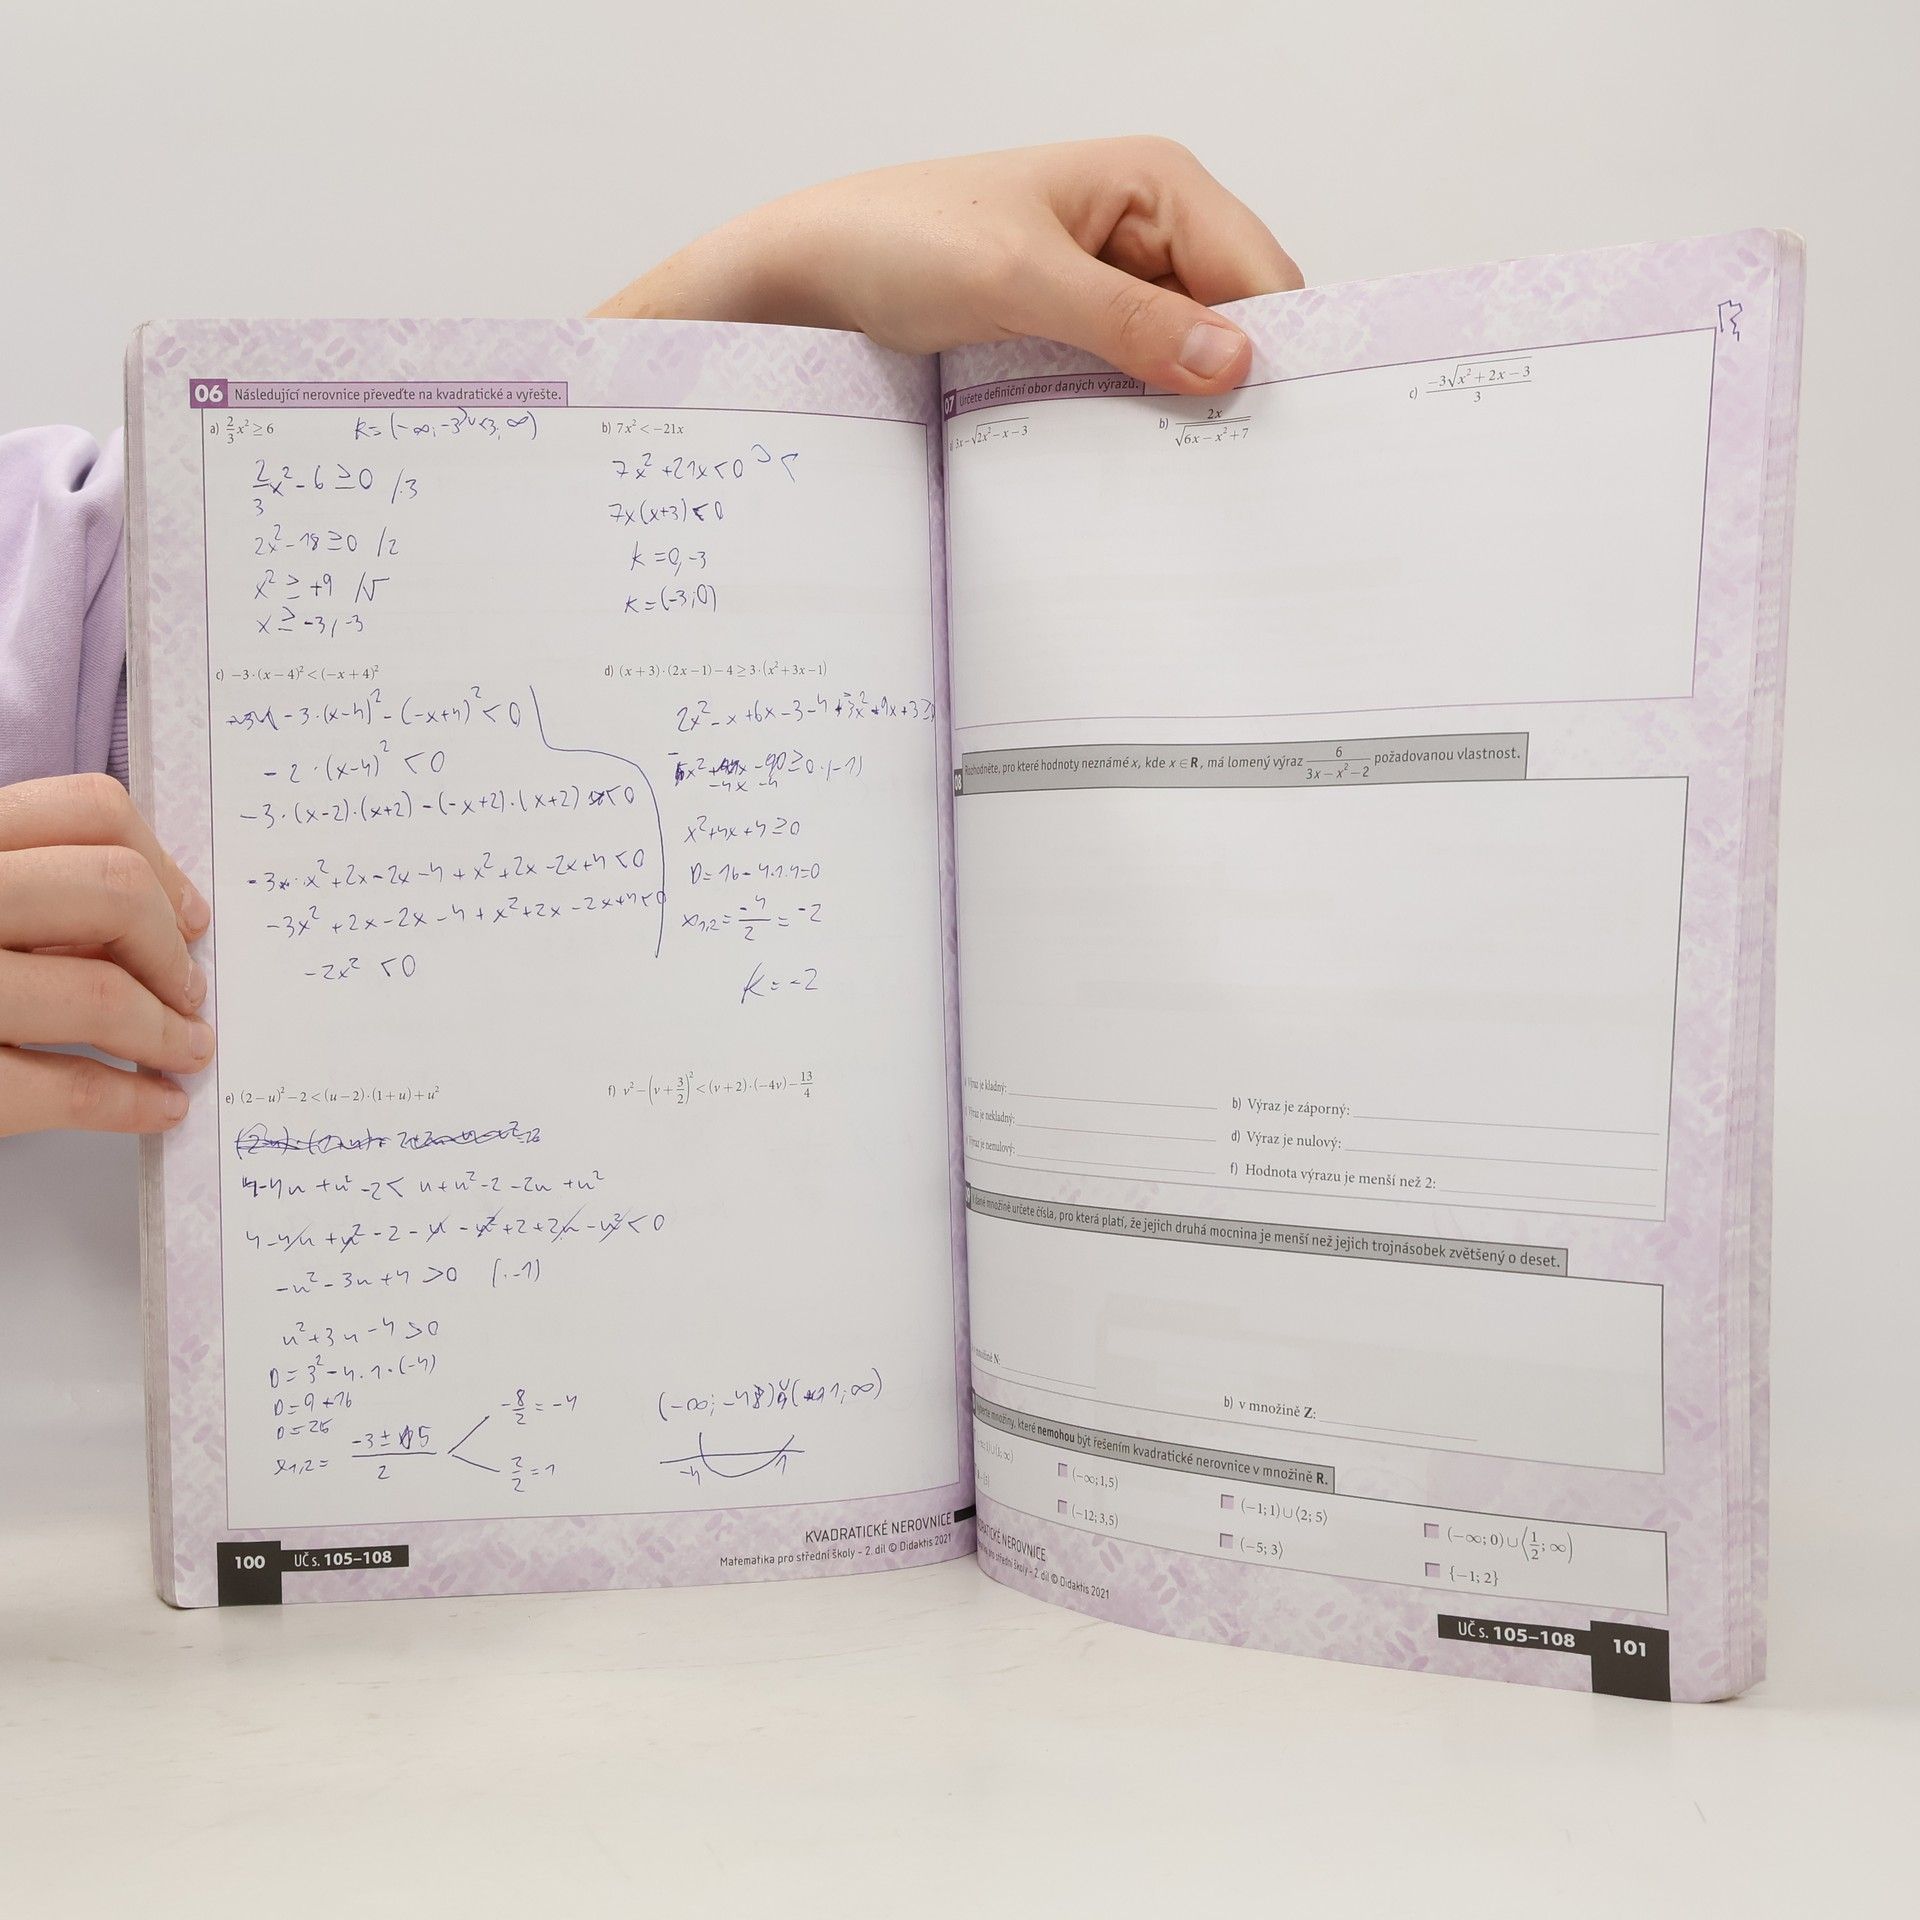 06 Následující nerovnice převeďte na kvadratické a vyřešte.
a) 2/3 x² ≥ 6
K=(-∞;-3⟩∪⟨3;∞)
2/3 x² - 6 ≥ 0 /·3
2x² - 18 ≥ 0 /2
x² ≥ +9 /√
x ≥ -3, -3
b) 7x² < −21x
7x² + 21x < 0
7x(x+3) < 0
K = 0, -3
K = (-3;0)
c) −3·(x−4)² < (−x+4)²
-3·(x-4)² - (-x+4)² < 0
-2·(x-4)² < 0
-3·(x-2)·(x+2) - (-x+2)·(x+2) < 0
-3·x² + 2x - 2x - 4 + x² + 2x - 2x + 4 < 0
-3x² + 2x - 2x - 4 + x² + 2x - 2x + 4 < 0
-2x² < 0
d) (x+3)·(2x−1)−4 ≥ 3·(x²+3x−1)
2x² - x + 6x - 3 - 4 - 3x² - 9x + 3 ≥ 0
-4x -4 ≥ 0 ·(-1)
x² + 4x + 4 ≥ 0
D = 16 - 4·1·4 = 0
x1,2 = -4/2 = -2
K = -2
e) (2−u)²−2 < (u−2)·(1+u)+u²
4-4u + u² - 2 < u + u² - 2 - 2u + u²
4 - 4u + u² - 2 - u - u² + 2 + 2u - u² < 0
-u² - 3u + 4 > 0 (·-1)
u² + 3u - 4 > 0
D = 3² - 4·1·(-4)
D = 9 + 16
D = 25
x1,2 = -3 ± 5 / 2
-8/2 = -4
2/2 = 1
(-∞; -4) ∪ (1; ∞)
-4 1
f) v²−(v+3/2)² < (v+2)·(−4v)−13/4
KVADRATICKÉ NEROVNICE
Matematika pro střední školy - 2. díl © Didaktis 2021
100 UČ s. 105–108
07 Určete definiční obor daných výrazů.
3x−√(2x²−x−3)
b) 2x/√(6x−x²+7)
c) −3√(x²+2x−3)/3
08 Rozhodněte, pro které hodnoty neznámé x, kde x ∈ R, má lomený výraz 6/(3x−x²−2) požadovanou vlastnost.
Výraz je kladný:
b) Výraz je záporný:
Výraz je nekladný:
d) Výraz je nulový:
Výraz je nenulový:
f) Hodnota výrazu je menší než 2:
dané množině určete čísla, pro která platí, že jejich druhá mocnina je menší než jejich trojnásobek zvětšený o deset.
množině N:
b) v množině Z:
množiny, které nemohou být řešením kvadratické nerovnice v množině R.
(−∞; 1,5)
(−1; 1)∪⟨2; 5)
(−∞; 0)∪⟨1/2; ∞)
(−12; 3,5)
(−5; 3⟩
{−1; 2}
KVADRATICKÉ NEROVNICE
střední školy - 2. díl © Didaktis 2021
UČ s. 105–108 101